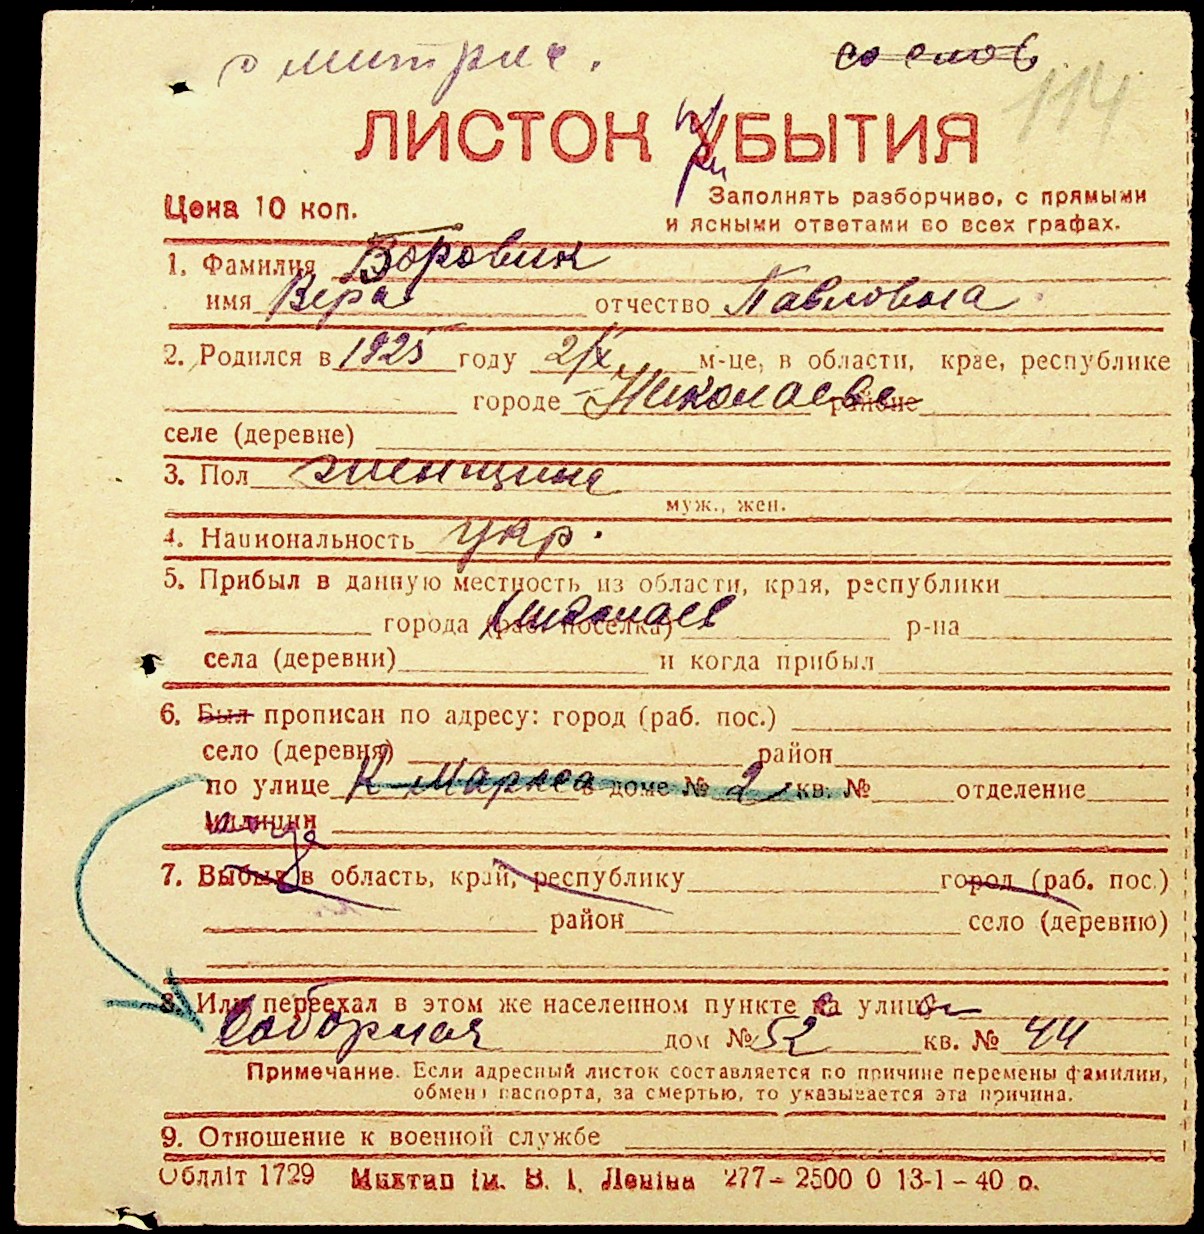 со слов
114
ЛИСТОК УБЫТИЯ
при
Цена 10 коп.
Заполнять разборчиво, с прямыми
и ясными ответами во всех графах.
1. Фамилия Боровик
имя Вера отчество Павловна
2. Родился в 1925 году 2/X м-це, в области, крае, республике
городе Николаеве районе
селе (деревне)
3. Пол женщина
муж., жен.
4. Национальность укр.
5. Прибыл в данную местность из области, края, республики
города (раб. поселка) Николаев р-на
села (деревни) и когда прибыл
6. Был прописан по адресу: город (раб. пос.)
село (деревня) район
по улице К Маркса в доме № 2 кв. № отделение
милиции
7. Выбыл в область, край, республику город (раб. пос.)
район село (деревню)
8. Или переехал в этом же населенном пункте на улицу
Соборная дом № 52 кв. № 44
Примечание. Если адресный листок составляется по причине перемены фамилии,
обмена паспорта, за смертью, то указывается эта причина.
9. Отношение к военной службе
Облліт 1729 Миктап ім. В. І. Леніна 277-2500 0 13-1-40 р.